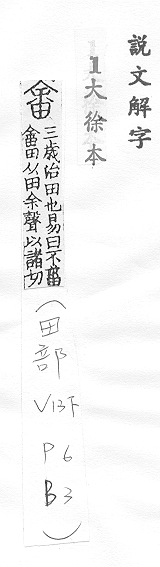 説文解字
1大徐本
畬 三歳治田也易曰不菑
畬田从田余聲以諸切
(田部
V13下
P6
B3)